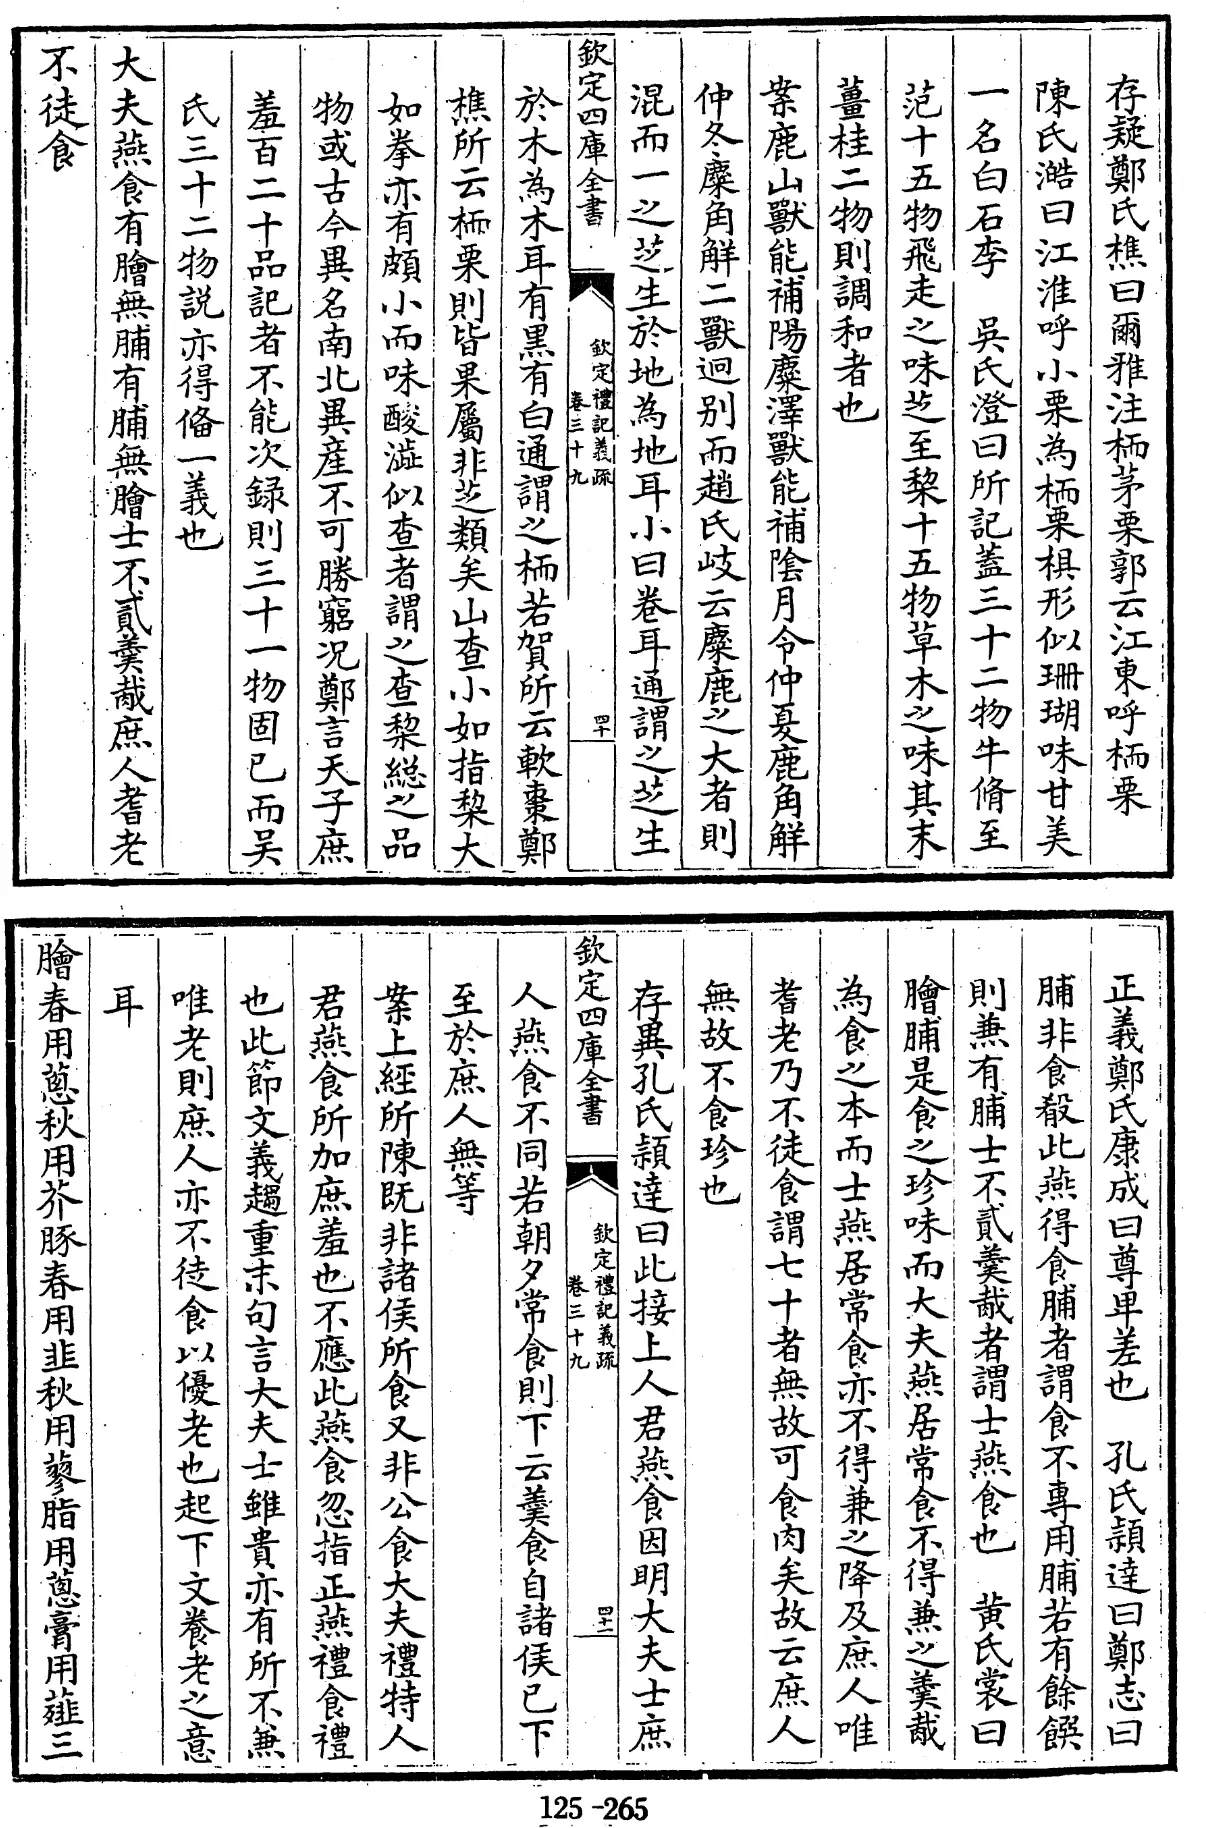 存疑鄭氏樵曰爾雅注栭茅栗郭云江東呼栭栗
陳氏澔曰江淮呼小栗為栭栗椇形似珊瑚味甘美
一名白石李　吳氏澄曰所記蓋三十二物牛脩至
范十五物飛走之味芝至棃十五物草木之味其末
薑桂二物則調和者也
案鹿山獸能補陽麋澤獸能補陰月令仲夏鹿角解
仲冬麋角解二獸迥别而趙氏岐云麋鹿之大者則
混而一之芝生於地為地耳小曰卷耳通謂之芝生
欽定四庫全書
欽定禮記義疏
卷三十九
四十
於木為木耳有黒有白通謂之栭若賀所云軟棗鄭
樵所云栭栗則皆果屬非芝類矣山查小如指棃大
如拳亦有頗小而味酸澁似查者謂之查棃總之品
物或古今異名南北異産不可勝窮况鄭言天子庶
羞百二十品記者不能次録則三十一物固已而吴
氏三十二物説亦得備一義也
大夫燕食有膾無脯有脯無膾士不貳羮胾庶人耆老
不徒食
正義鄭氏康成曰尊卑差也　孔氏頴達曰鄭志曰
脯非食殽此燕得食脯者謂食不專用脯若有餘饌
則兼有脯士不貳羮胾者謂士燕食也　黄氏裳曰
膾脯是食之珍味而大夫燕居常食不得兼之羮胾
為食之本而士燕居常食亦不得兼之降及庶人唯
耆老乃不徒食謂七十者無故可食肉矣故云庶人
無故不食珍也
存異孔氏頴達曰此接上人君燕食因明大夫士庶
欽定四庫全書
欽定禮記義疏
卷三十九
四十一
人燕食不同若朝夕常食則下云羮食自諸侯已下
至於庶人無等
案上經所陳既非諸侯所食又非公食大夫禮特人
君燕食所加庶羞也不應此燕食忽指正燕禮食禮
也此節文義趨重末句言大夫士雖貴亦有所不兼
唯老則庶人亦不徒食以優老也起下文養老之意
耳
膾春用蔥秋用芥豚春用韭秋用蓼脂用蔥膏用薤三
125-265